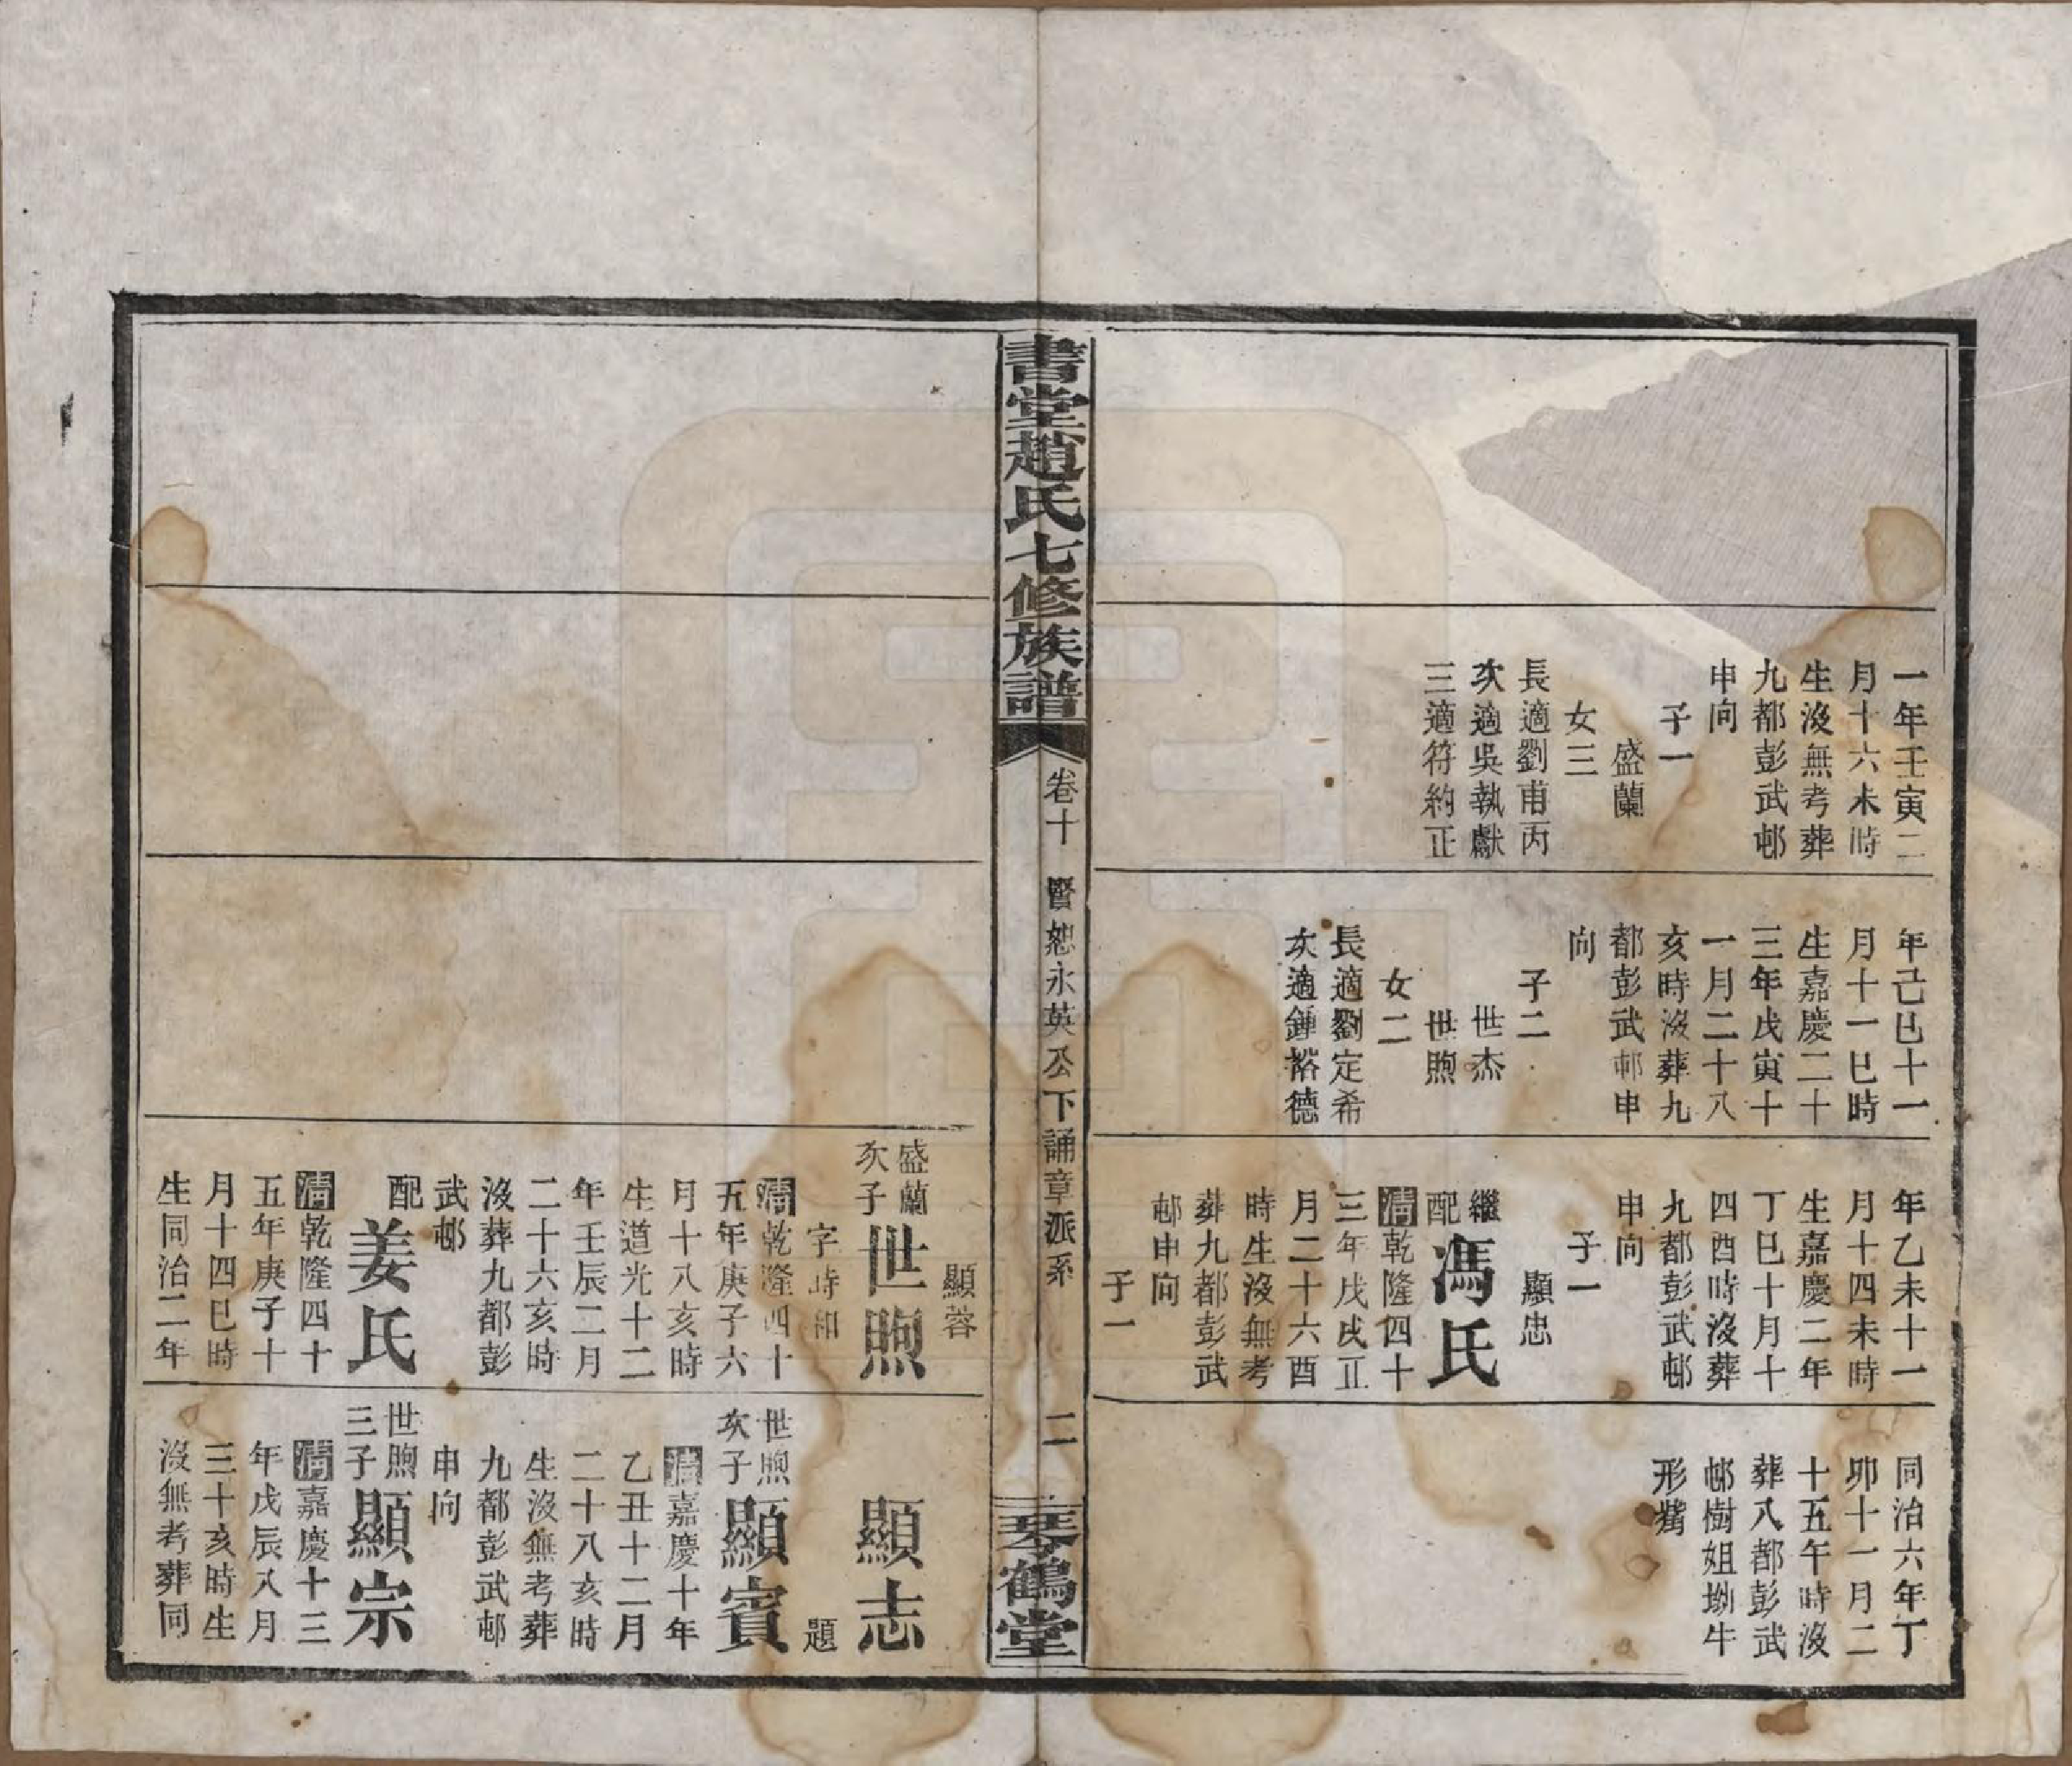 一年壬寅二
月十六未時
生沒無考葬
九都彭武邨
申向
子一
盛蘭
女三
長適劉甫丙
次適吳執獻
三適符約正
年己巳十一
月十一巳時
生嘉慶二十
三年戊寅十
一月二十八
亥時沒葬九
都彭武邨申
向
子二
世杰
世煦
女二
長適劉定希
次適鍾裕德
年乙未十一
月十四未時
生嘉慶二年
丁巳十月十
四酉時沒葬
九都彭武邨
申向
子一
顯忠
繼配馮氏
清乾隆四十
三年戊戌正
月二十六酉
時生沒無考
葬九都彭武
邨申向
子一
同治六年丁
卯十一月二
十五午時沒
葬八都彭武
邨樹姐坳牛
形嘴
書堂趙氏七修族譜
卷十
賢恕永英公下誦章派系
二
琴鶴堂
顯蓉
盛蘭次子世煦
字時和
清乾隆四十
五年庚子六
月十八亥時
生道光十二
年壬辰二月
二十六亥時
沒葬九都彭
武邨
配姜氏
清乾隆四十
五年庚子十
月十四巳時
生同治二年
顯志
題
世煦次子顯賓
清嘉慶十年
乙丑十二月
二十八亥時
生沒無考葬
九都彭武邨
申向
世煦三子顯宗
清嘉慶十三
年戊辰八月
三十亥時生
沒無考葬同